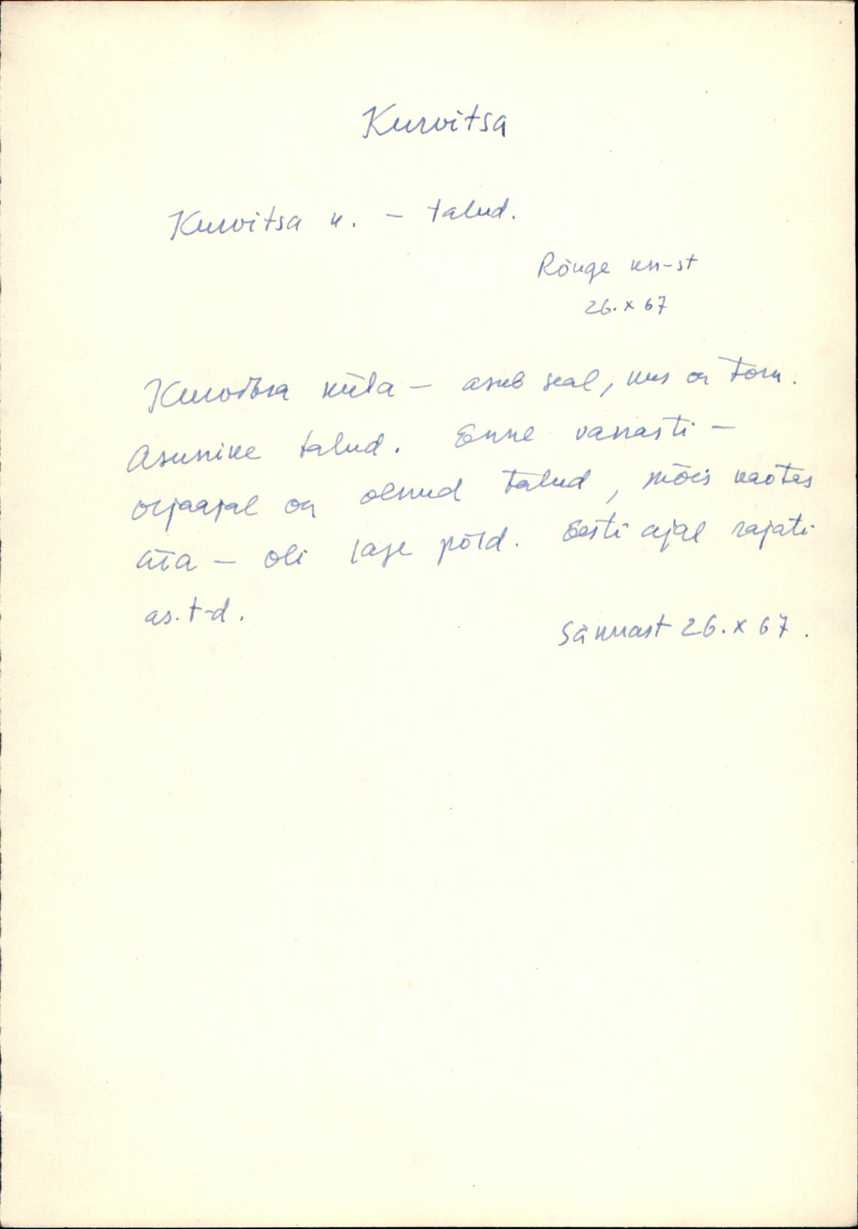 Kurvitsa
Kurvitsa k. – talud.
Rõuge kn-st
26.x 67
Kurvitsa küla – asub seal, kus on torn.
Asunike talud. Enne vanasti –
orjaajal on olnud talud, mõis kaotas
ära – oli lage põld. Eesti ajal rajati
as. t-d.
Sännast 26.x 67.